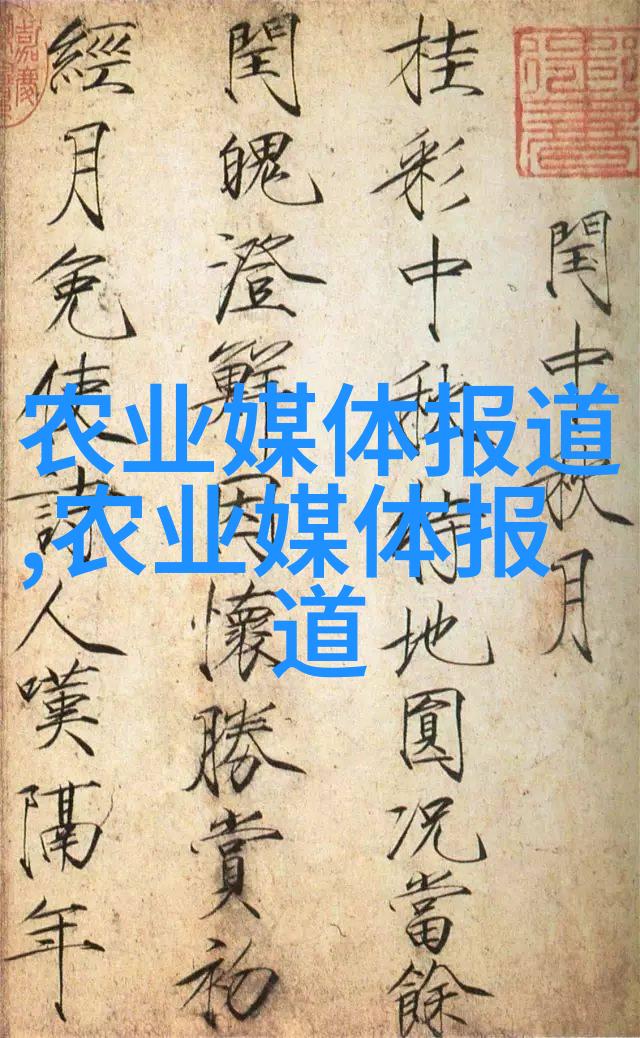 閏中秋月
桂彩中秋特地圓况當餘
閏魄澄鮮因懷勝賞初
經月免使詩人嘆隔年
农业媒体报道
,农业媒体报
道